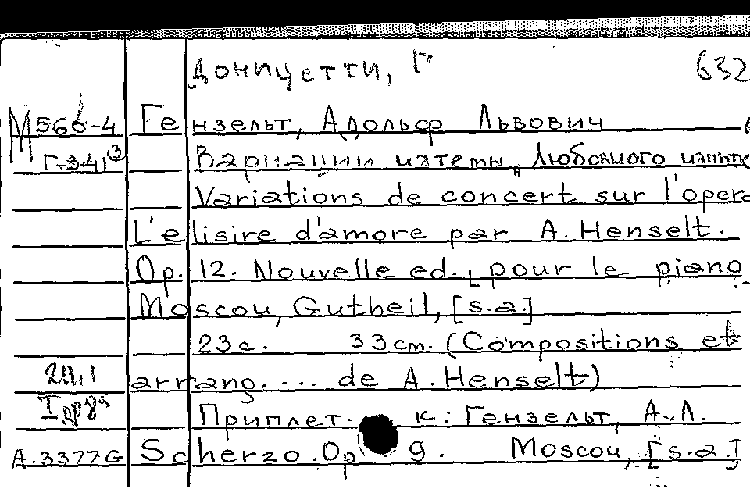 Доницетти, Г 632
М566-4 Гензельт, Адольф Львович
Г-341 Вариации на темы "Любовного напитка
Variations de concert sur l'opera
L'elisire d'amore par A. Henselt.
Op. 12. Nouvelle ed., pour le piano
Moscou, Gutheil, [s.a.]
23с. 33cm. (Compositions et
arrang. ... de A. Henselt)
Приплет. к: Гензельт, А.Л.
А.3377G Scherzo. Op 9. Moscou, [s.a.]